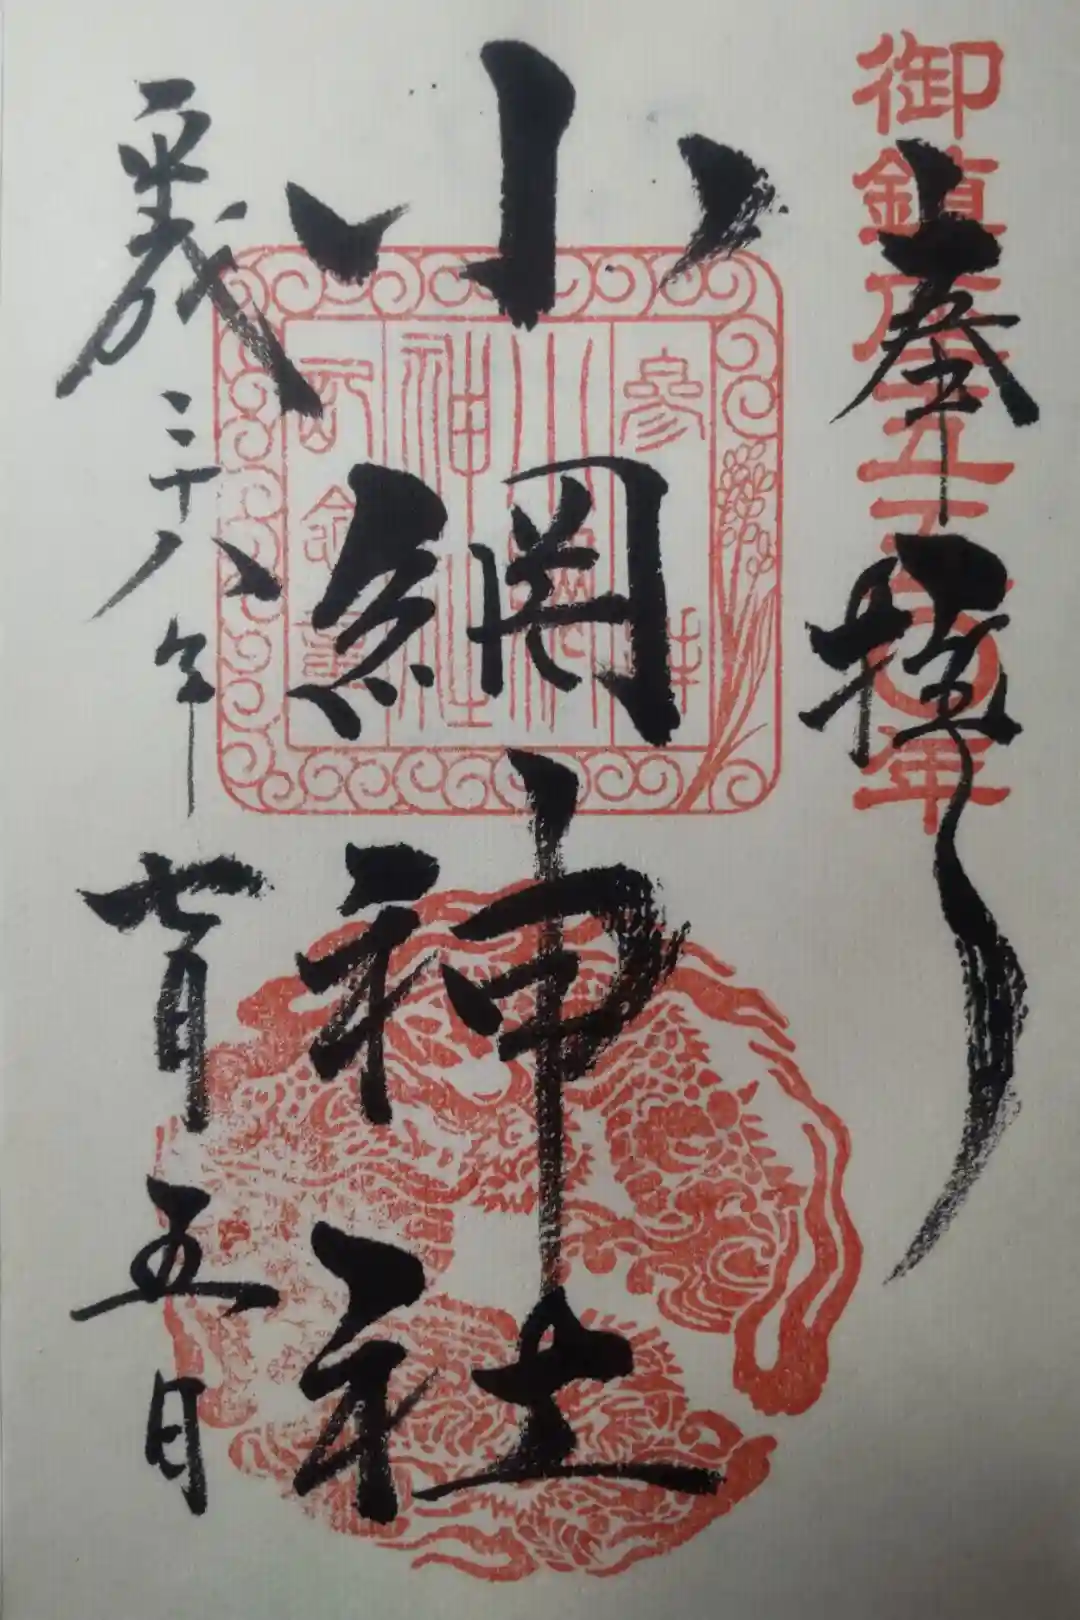 御鎮座五五〇年
奉拝
小網神社
小網神社
平成二十八年七月五日